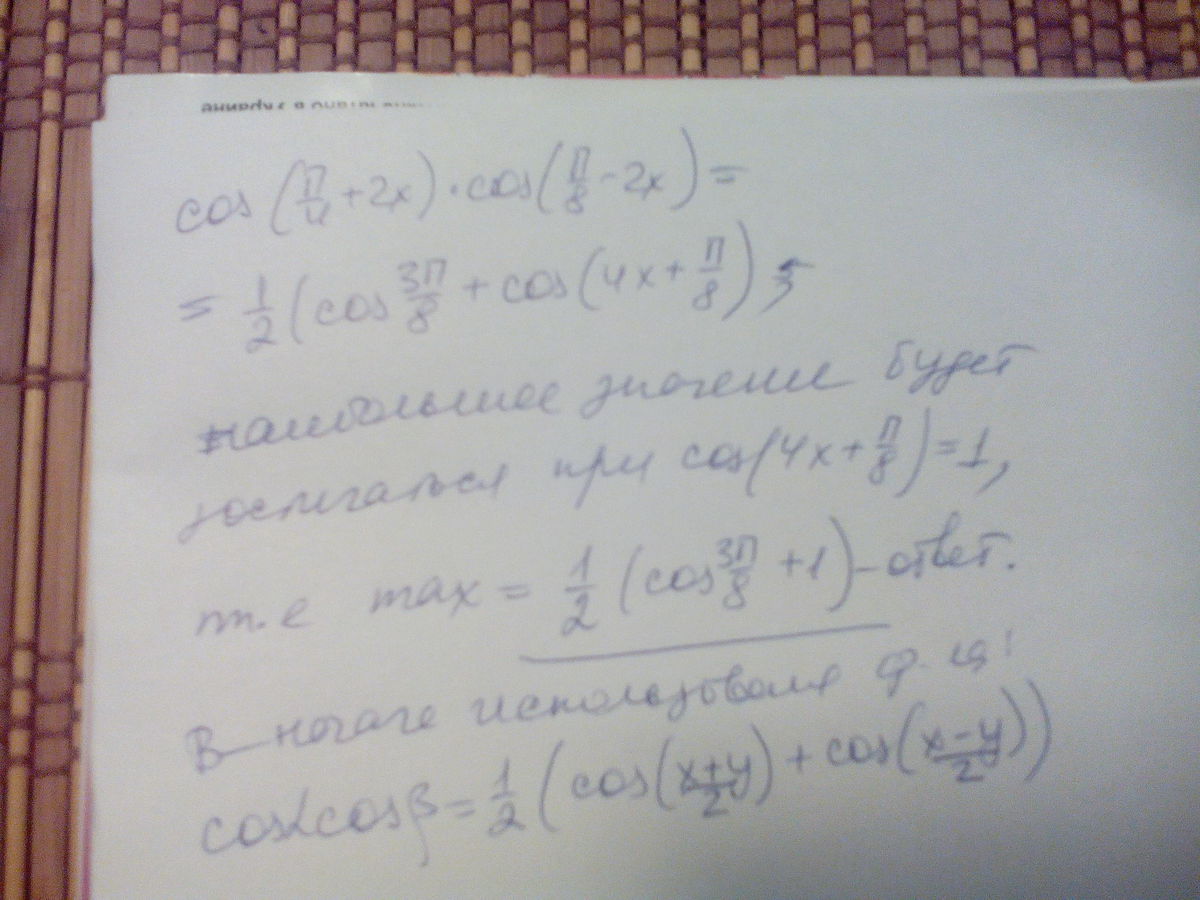 cos(π/4+2x)·cos(π/8-2x)=
= 1/2(cos 3π/8 + cos(4x+π/8);
наибольшее значение будет
достигаться при cos(4x+π/8)=1,
т.е max = 1/2 (cos 3π/8 +1) - ответ.
В начале использовали ф-ла:
cosαcosβ = 1/2 (cos(x+y) + cos(x-y))